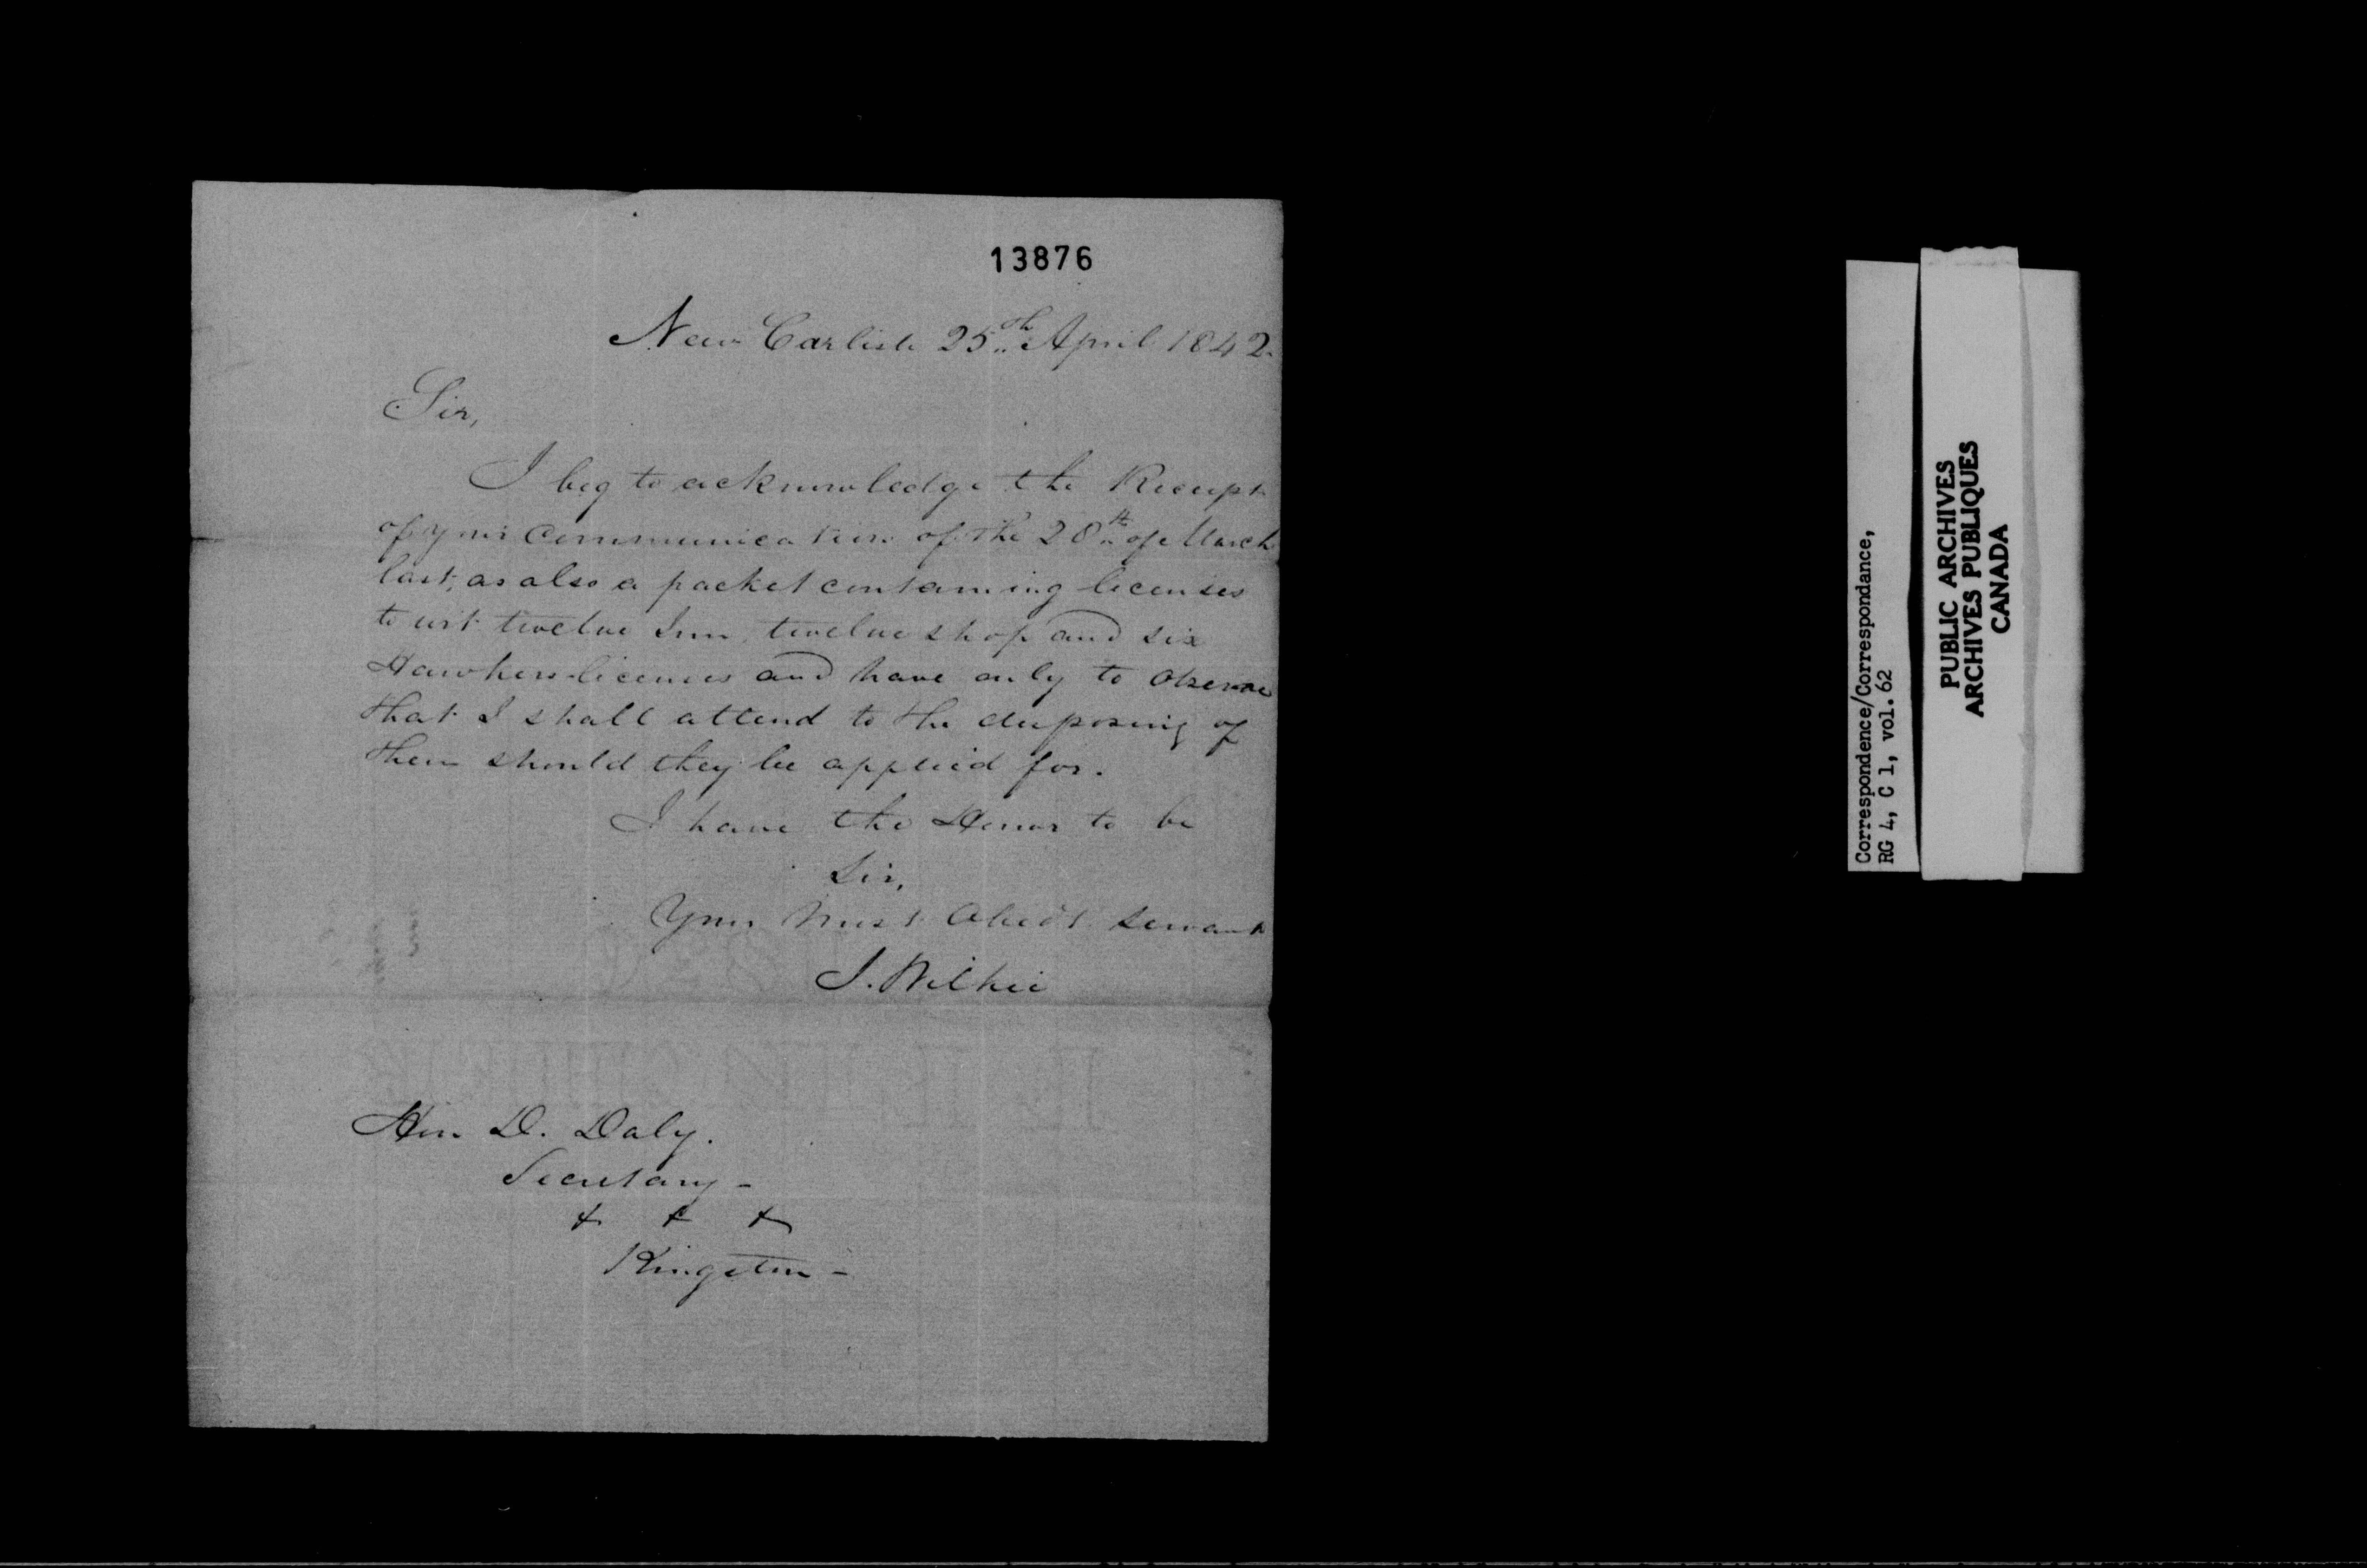 13876
New Carlisle 25th April 1842.
Sir,
I beg to acknowledge the Receipt
of your Communication of the 28th of March
last, as also a packet containing licenses
to wit twelve Inn, twelve shop and six
Hawkers licenses and have only to observe
that I shall attend to the disposing of
them should they be applied for.
I have the Honor to be
Sir,
Your Most Obedt servant
J. Wilkie
Hon D. Daly.
Secretary -
+ + +
Kingston -
Correspondence/Correspondance,
RG 4, C 1, vol. 62
PUBLIC ARCHIVES
ARCHIVES PUBLIQUES
CANADA